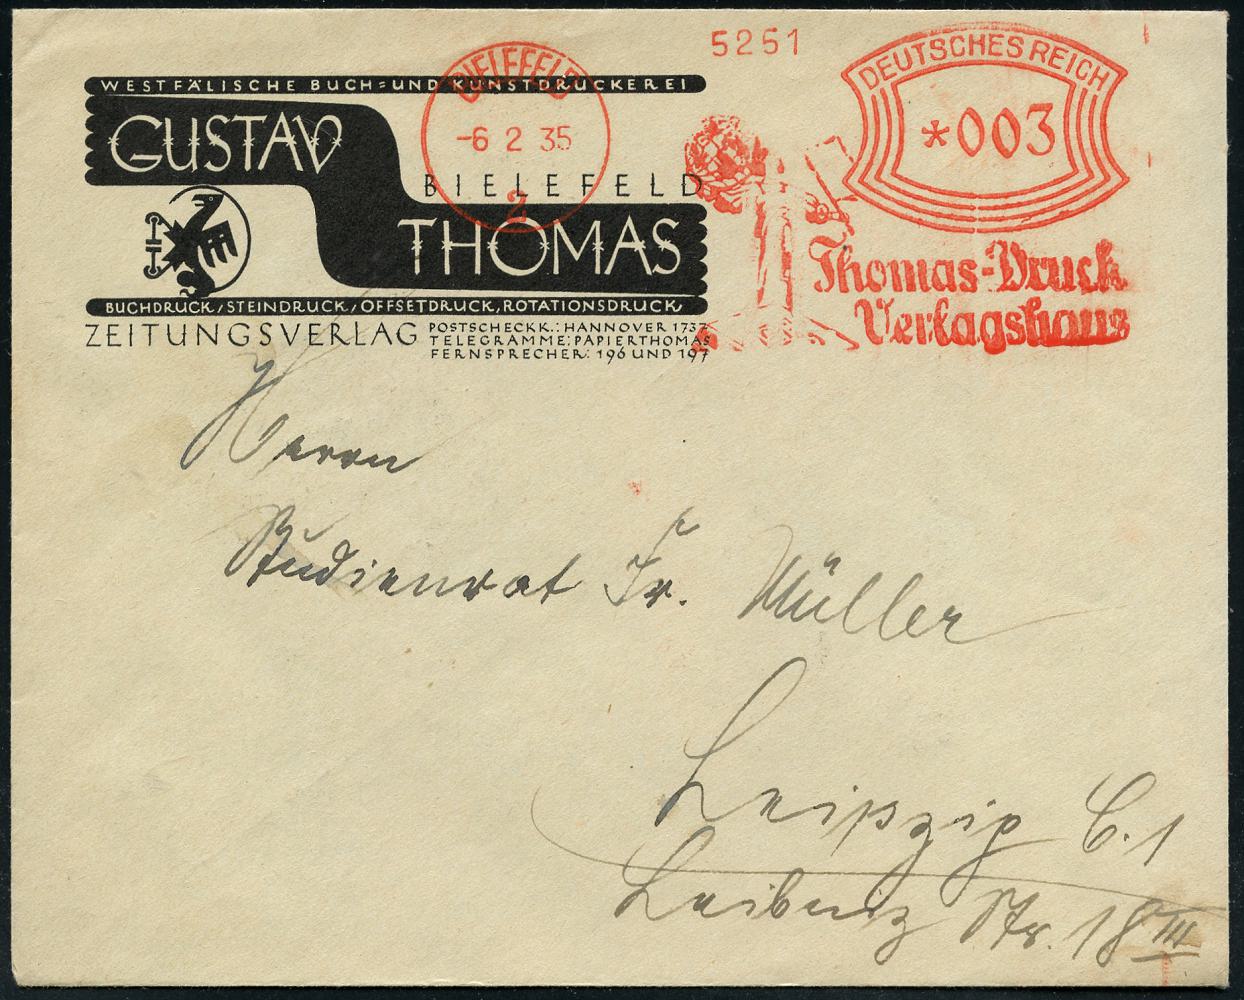 WESTFÄLISCHE BUCH=UND KUNSTDRUCKEREI
GUSTAV
BIELEFELD
THOMAS
BUCHDRUCK/STEINDRUCK/OFFSETDRUCK, ROTATIONSDRUCK
ZEITUNGSVERLAG
POSTSCHECKK.: HANNOVER 1737
TELEGRAMME: PAPIERTHOMAS
FERNSPRECHER: 196 UND 197
BIELEFELD
-6 2 35
2
5261
DEUTSCHES REICH
*003
Thomas-Druck
Verlagshaus
Herrn
Studienrat Fr. Müller
Leipzig C. 1
Leibniz Str. 18 III